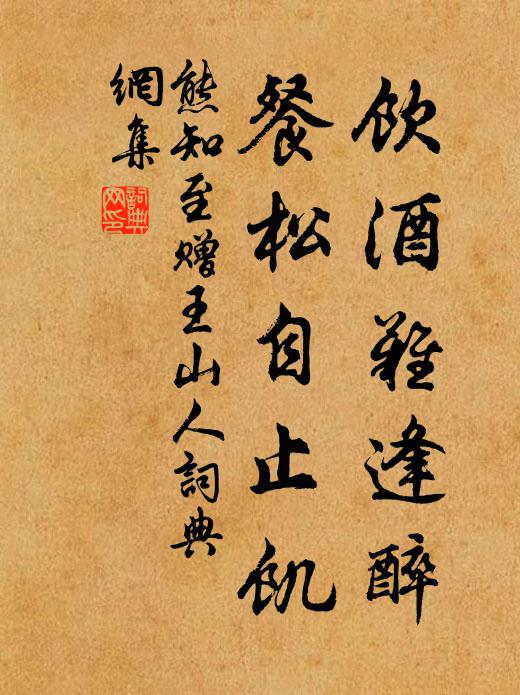 飲酒難逢醉
餐松自止飢
熊知至贈王山人詞典
網集
詞典
网印